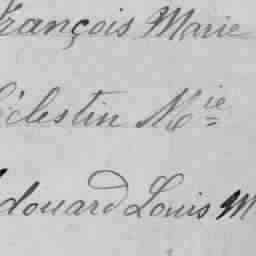 François Marie
Célestin M.ie
Edouard Louis M